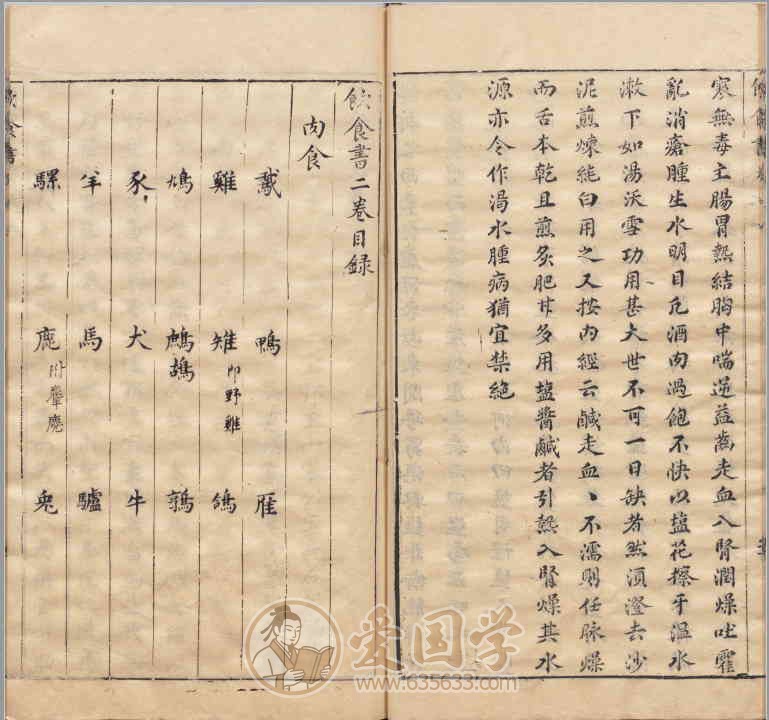 寒無毒主腸胃熱結胸中喘逆益齒走血入腎潤燥吐霍
亂消瘡腫生水明目凡酒肉過飽不快以塩花擦牙温水
漱下如湯沃雪功用甚大世不可一日缺者然須澄去沙
泥煎煉純白用之又按内經云鹹走血丶不濡則任脉燥
而舌本乾且煎炙肥甘多用塩醬鹹者引熱入腎燥其水
源亦令作渇水腫病猶宜禁絶
飲食書二卷目録
肉食
鵞 鴨 雁
雞 雉即野雞 鴿
鳩 鷓鴣 鶉
豕 犬 牛
羊 馬 驢
騾 鹿附麞麂 兎
飲食書
爱国学
www.635633.com